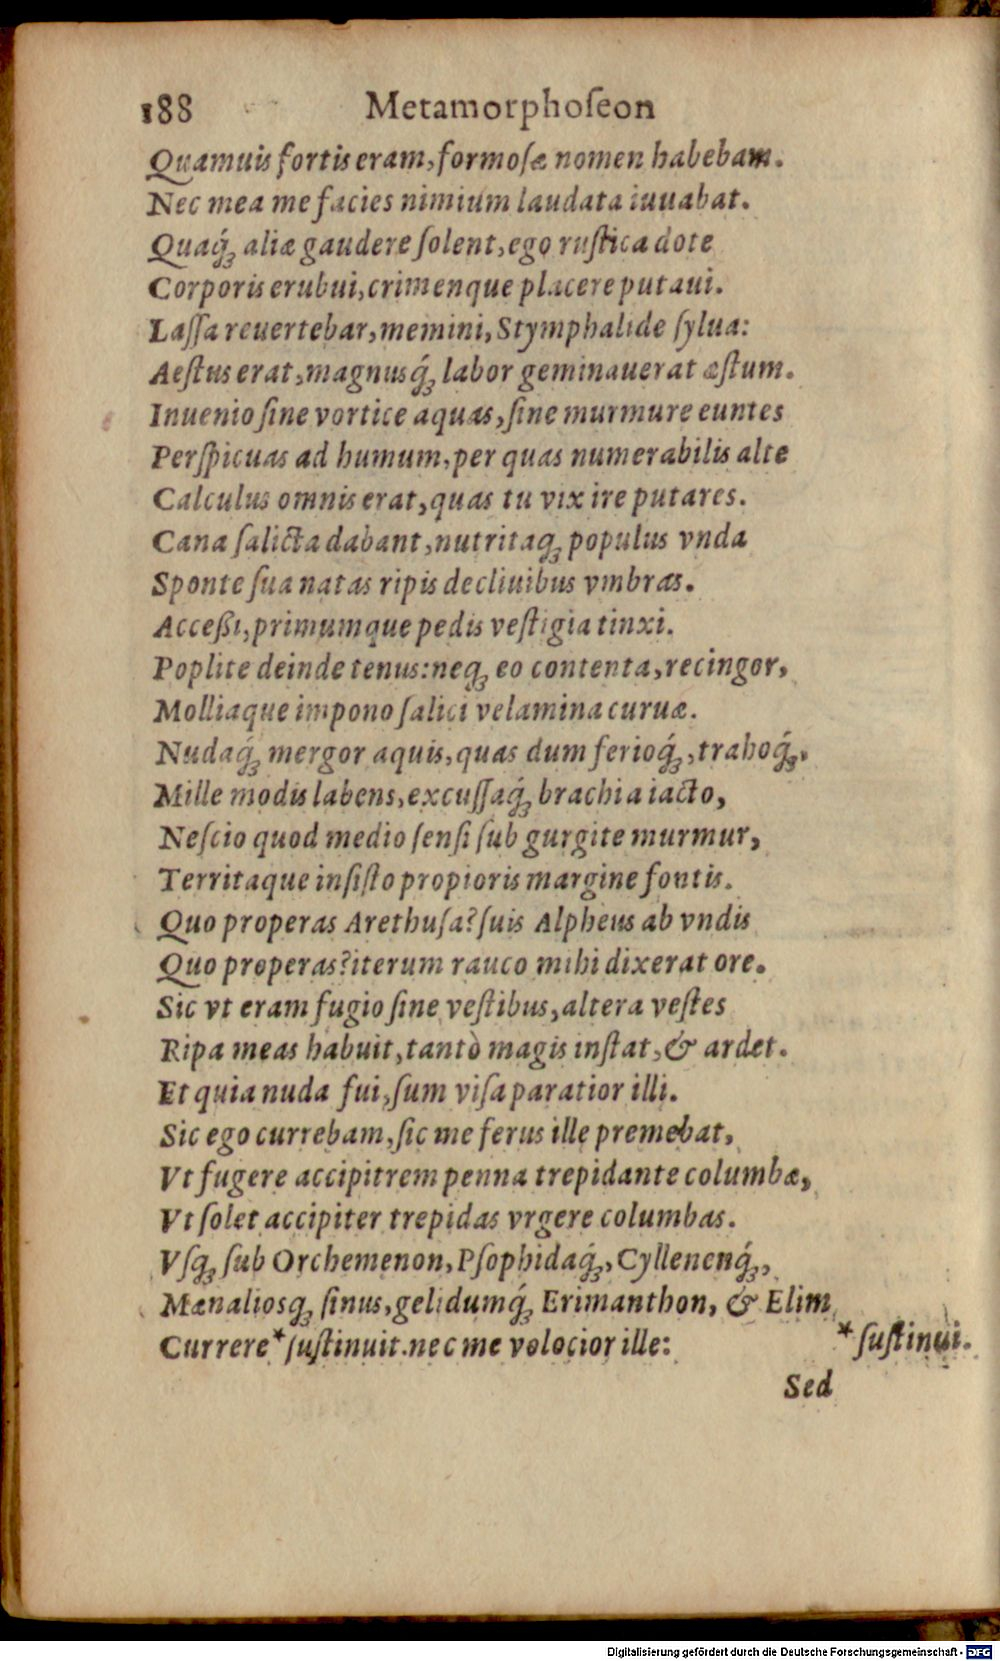 188 Metamorphoſeon
Quamuis fortis eram, formoſæ nomen habebam.
Nec mea me facies nimium laudata iuuabat.
Quaq́ꝫ aliæ gaudere ſolent, ego ruſtica dote
Corporis erubui, crimenque placere putaui.
Laſſa reuertebar, memini, Stymphalide ſylua:
Aeſtus erat, magnusq́ꝫ labor geminauerat æſtum.
Inuenio ſine vortice aquas, ſine murmure euntes
Perſpicuas ad humum, per quas numerabilis alte
Calculus omnis erat, quas tu vix ire putares.
Cana ſalicta dabant, nutritaqꝫ populus vnda
Sponte ſua natas ripis decliuibus vmbras.
Acceßi, primumque pedis veſtigia tinxi.
Poplite deinde tenus: neqꝫ eo contenta, recingor,
Molliaque impono ſalici velamina curuæ.
Nudaq́ꝫ mergor aquis, quas dum ferioq́ꝫ, trahoq́ꝫ.
Mille modis labens, excuſſaq́ꝫ brachia iacto,
Neſcio quod medio ſenſi ſub gurgite murmur,
Territaque inſiſto propioris margine fontis.
Quo properas Arethuſa? ſuis Alpheus ab vndis
Quo properas? iterum rauco mihi dixerat ore.
Sic vt eram fugio ſine veſtibus, altera veſtes
Ripa meas habuit, tantò magis inſtat, & ardet.
Et quia nuda fui, ſum viſa paratior illi.
Sic ego currebam, ſic me ferus ille premebat,
Vt fugere accipitrem penna trepidante columbæ,
Vt ſolet accipiter trepidas vrgere columbas.
Vſqꝫ ſub Orchemenon, Pſophidaq́ꝫ, Cyllenenq́ꝫ,
Mænaliosqꝫ ſinus, gelidumq́ꝫ Erimanthon, & Elim
Currere * ſuſtinuit. nec me velocior ille: * ſuſtinui.
Sed
Digitalisierung gefördert durch die Deutsche Forschungsgemeinschaft - DFG